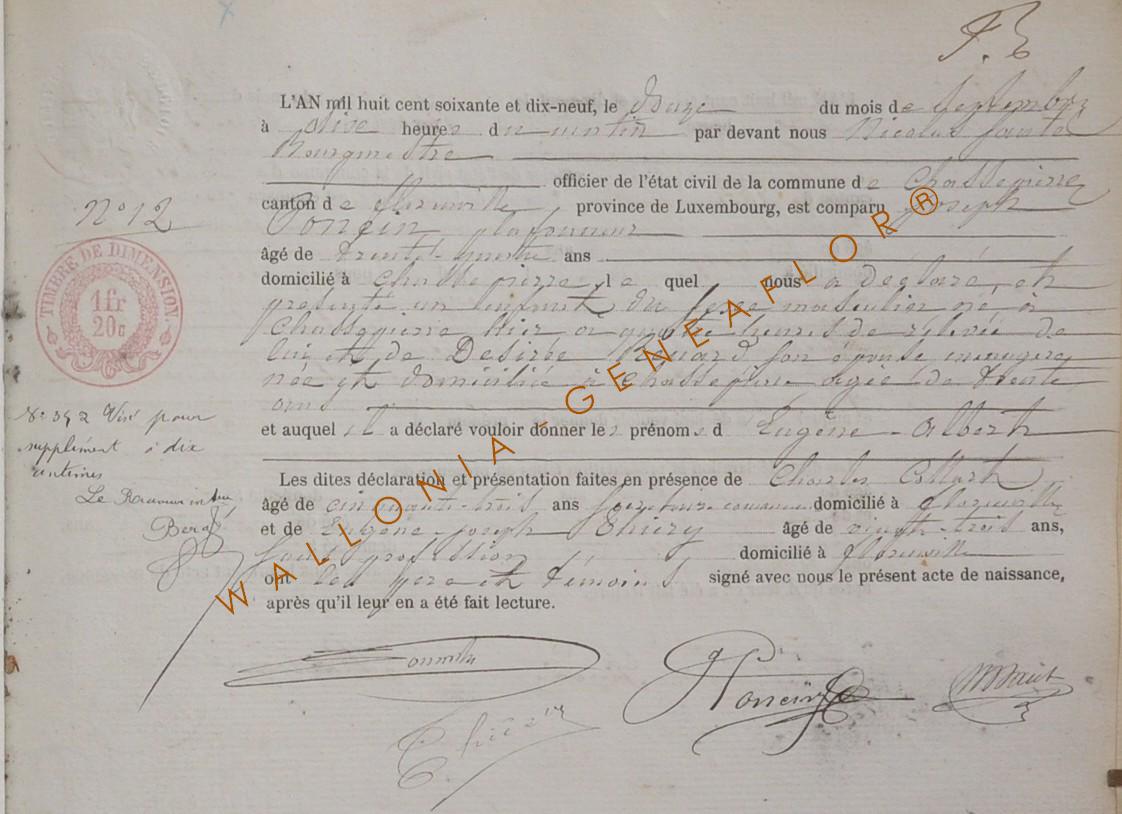 L'AN mil huit cent soixante et dix-neuf, le onze du mois de Septembre
à dix heures du matin par devant nous Nicolas
Bourgmestre
officier de l'état civil de la commune de Chassepierre
canton de Florenville, province de Luxembourg, est comparu Joseph
Poncin, plafonneur
âgé de trente ans
domicilié à Chassepierre le quel nous a déclaré et
présenté un enfant du sexe masculin né à
Chassepierre hier à quatre heures de relevée de
lui et de Desirée son épouse ménagère
née et domiciliée à Chassepierre agée de trente
ans
et auquel il a déclaré vouloir donner les prénoms d Eugène-Albert
Les dites déclaration et présentation faites en présence de Charles Collart
âgé de cinquante-trois ans domicilié à Florenville
et de Eugène-Joseph Thiery âgé de vingt-trois ans,
sans profession domicilié à Florenville
ont les père et témoins signé avec nous le présent acte de naissance,
après qu'il leur en a été fait lecture.
N° 12
TIMBRE DE DIMENSION
1fr
20c
Visé pour
supplément à dix
centimes
Le Receveur
Poncin
WALLONIA-GENEAFLOR®